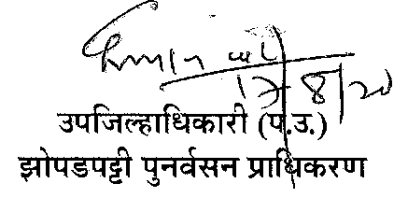 17/8/20
उपजिल्हाधिकारी (प.उ.)
झोपडपट्टी पुनर्वसन प्राधिकरण